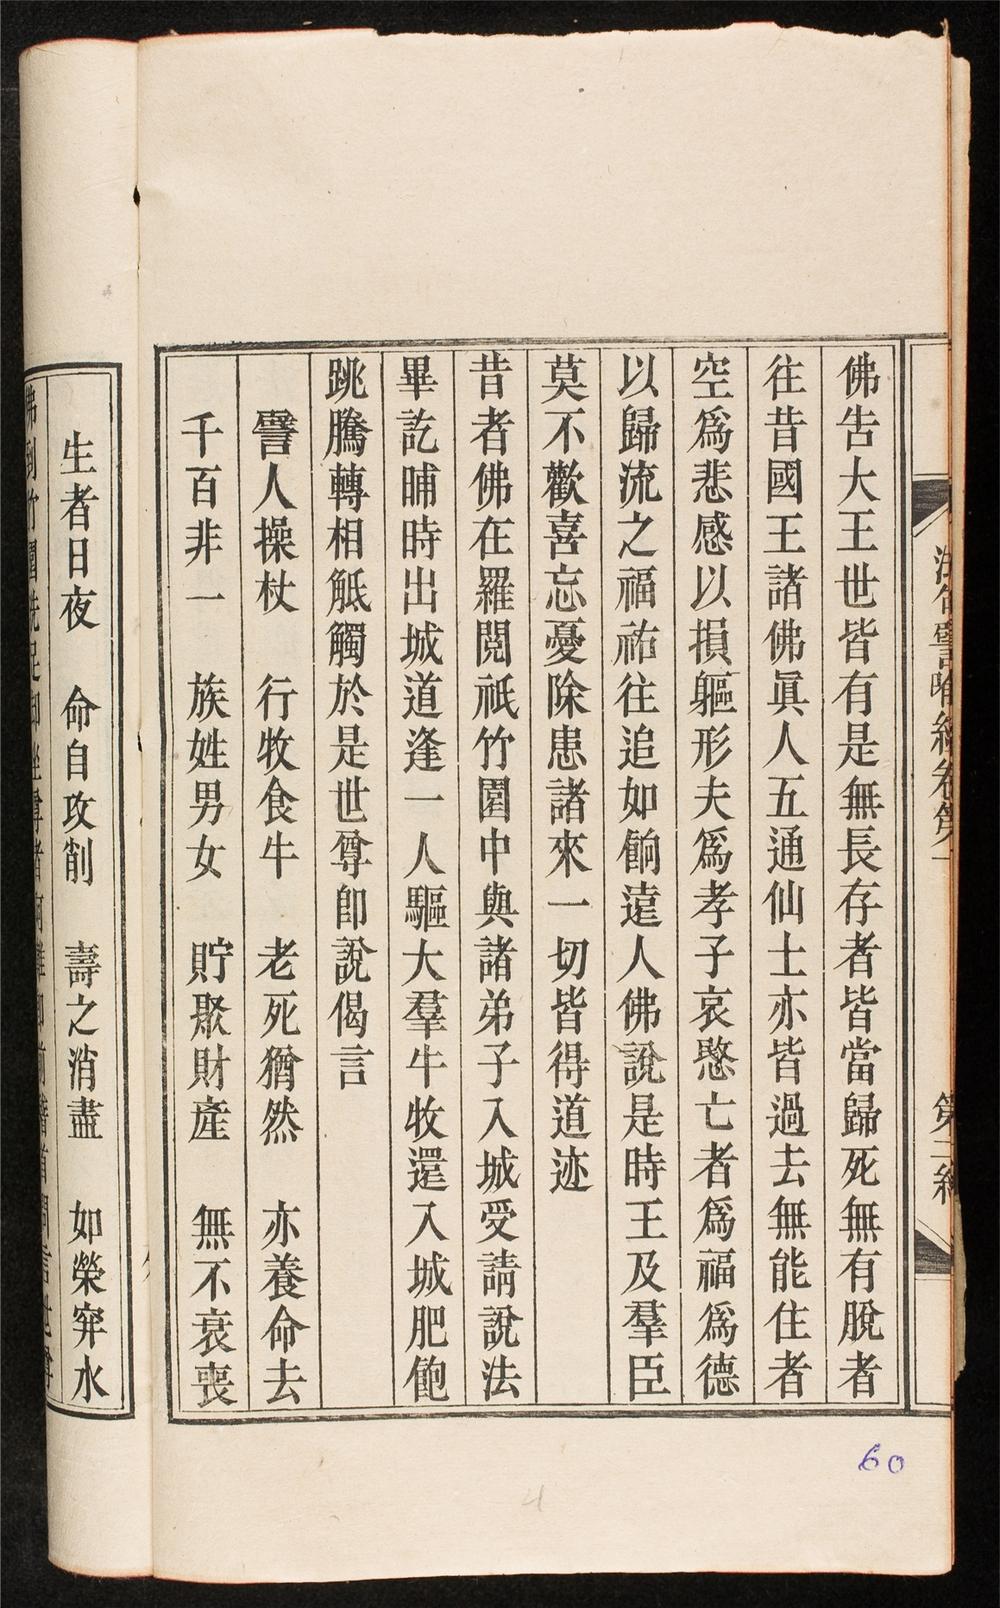 法句譬喻經卷第一 第二
佛告大王世皆有是無長存者皆當歸死無有脫者
往昔國王諸佛眞人五通仙士亦皆過去無能住者
空爲悲感以損軀形夫爲孝子哀愍亡者爲福爲德
以歸流之福祐往追如餉遠人佛說是時王及羣臣
莫不歡喜忘憂除患諸來一切皆得道迹
昔者佛在羅閱祇竹園中與諸弟子入城受請說法
畢訖晡時出城道逢一人驅大羣牛牧還入城肥飽
跳騰轉相觝觸於是世尊卽說偈言
譬人操杖 行牧食牛 老死猶然 亦養命去
千百非一 族姓男女 貯聚財產 無不衰喪
生者日夜 命自攻削 壽之消盡 如榮穽水
60
4